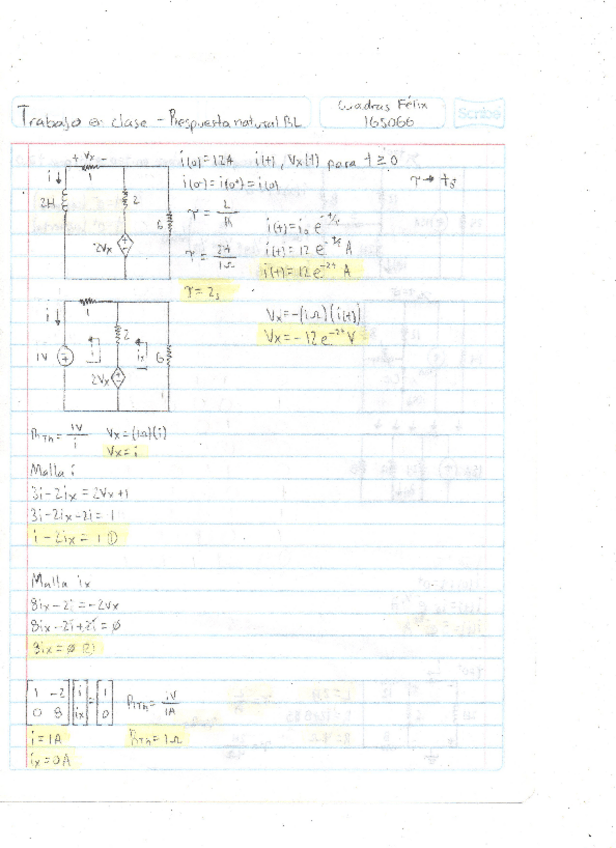 Trabajo en clase - Respuesta natural RL
Cuadras Félix
165066
Scribe
+ Vx -
1
i
2H
2
6
2Vx
i(0)=12A i(t), Vx(t) para t ≥ 0
i(0⁻)=i(0⁺)=i(0)
τ = L/R
τ = 2H/1Ω
τ = 2s
i(t)=12 e A
Vx=-(1Ω)(i(t))
i
1
1V
2
ix
6
2Vx
RTh = 1V/i Vx=(1Ω)(i)
Vx=i
Malla i
3i-2ix=2Vx+1
3i-2ix-2i=1
i-2ix=1 ①
Malla ix
8ix-2i=-2Vx
8ix-2i+2i=ø
8ix=ø ②
[1 -2; 0 8][i; ix]=[1; 0] RTh = 1V/1A
i=1A RTh=1Ω
ix=0A